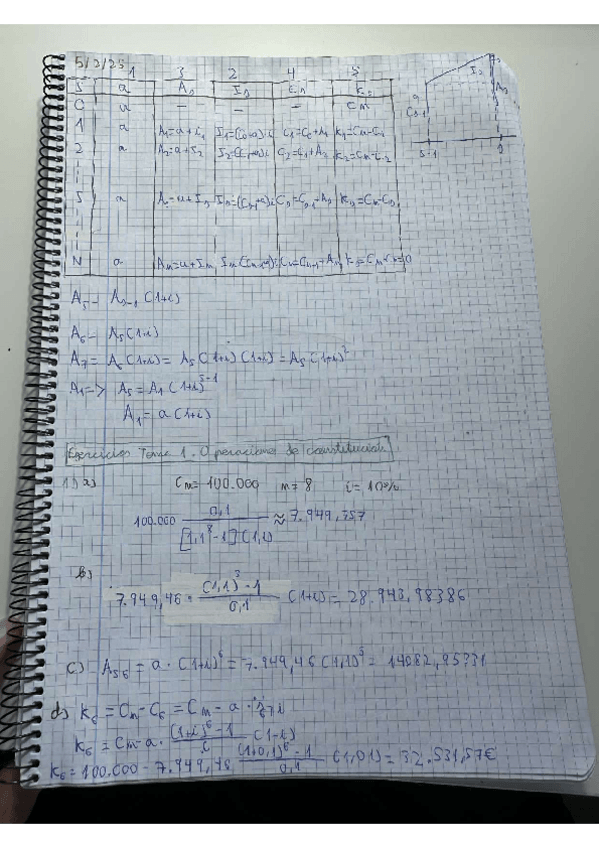 5/2/25
1 3 2 4 5
S a As Is Cs Ks
0 a — — — Cn
1 a A1=a+I1 I1=(C0+a)i C1=C0+A1 K1=Cn-C1
2 a A2=a+I2 I2=(C1+a)i C2=C1+A2 K2=Cn-C2
S a As=a+Is Is=(Cs-1+a)i Cs=Cs-1+As Ks=Cn-Cs
N a An=a+In In=(Cn-1+a)i Cn=Cn-1+An Kn=Cn-Cn=0
a
Cs-1
Is
As
s-1 s
As = As-1 (1+i)
A6 = A5(1+i)
A7 = A6(1+i) = A5(1+i)(1+i) = A5(1+i)²
A1=> As = A1(1+i)^s-1
A1 = a(1+i)
Ejercicios Tema 1. Operaciones de constitución
1) a) Cn=100.000 n=8 i=10%
100.000 0,1 / [1,1⁸-1](1,1) ≈ 7.949,457
b)
7.949,46 · (1,1)³-1 / 0,1 (1+i) = 28.943,98386
c) A = a·(1+i)⁶ = 7.949,46(1,10)⁶ = 14082,95331
d) K6 = Cn - C6 = Cn - a ·
K6 = Cn-a· (1+i)⁶-1 / i (1+i)
K6 = 100.000 - 7.949,46 (1+0,1)⁶-1 / 0,1 (1,01) = 32.531,57€